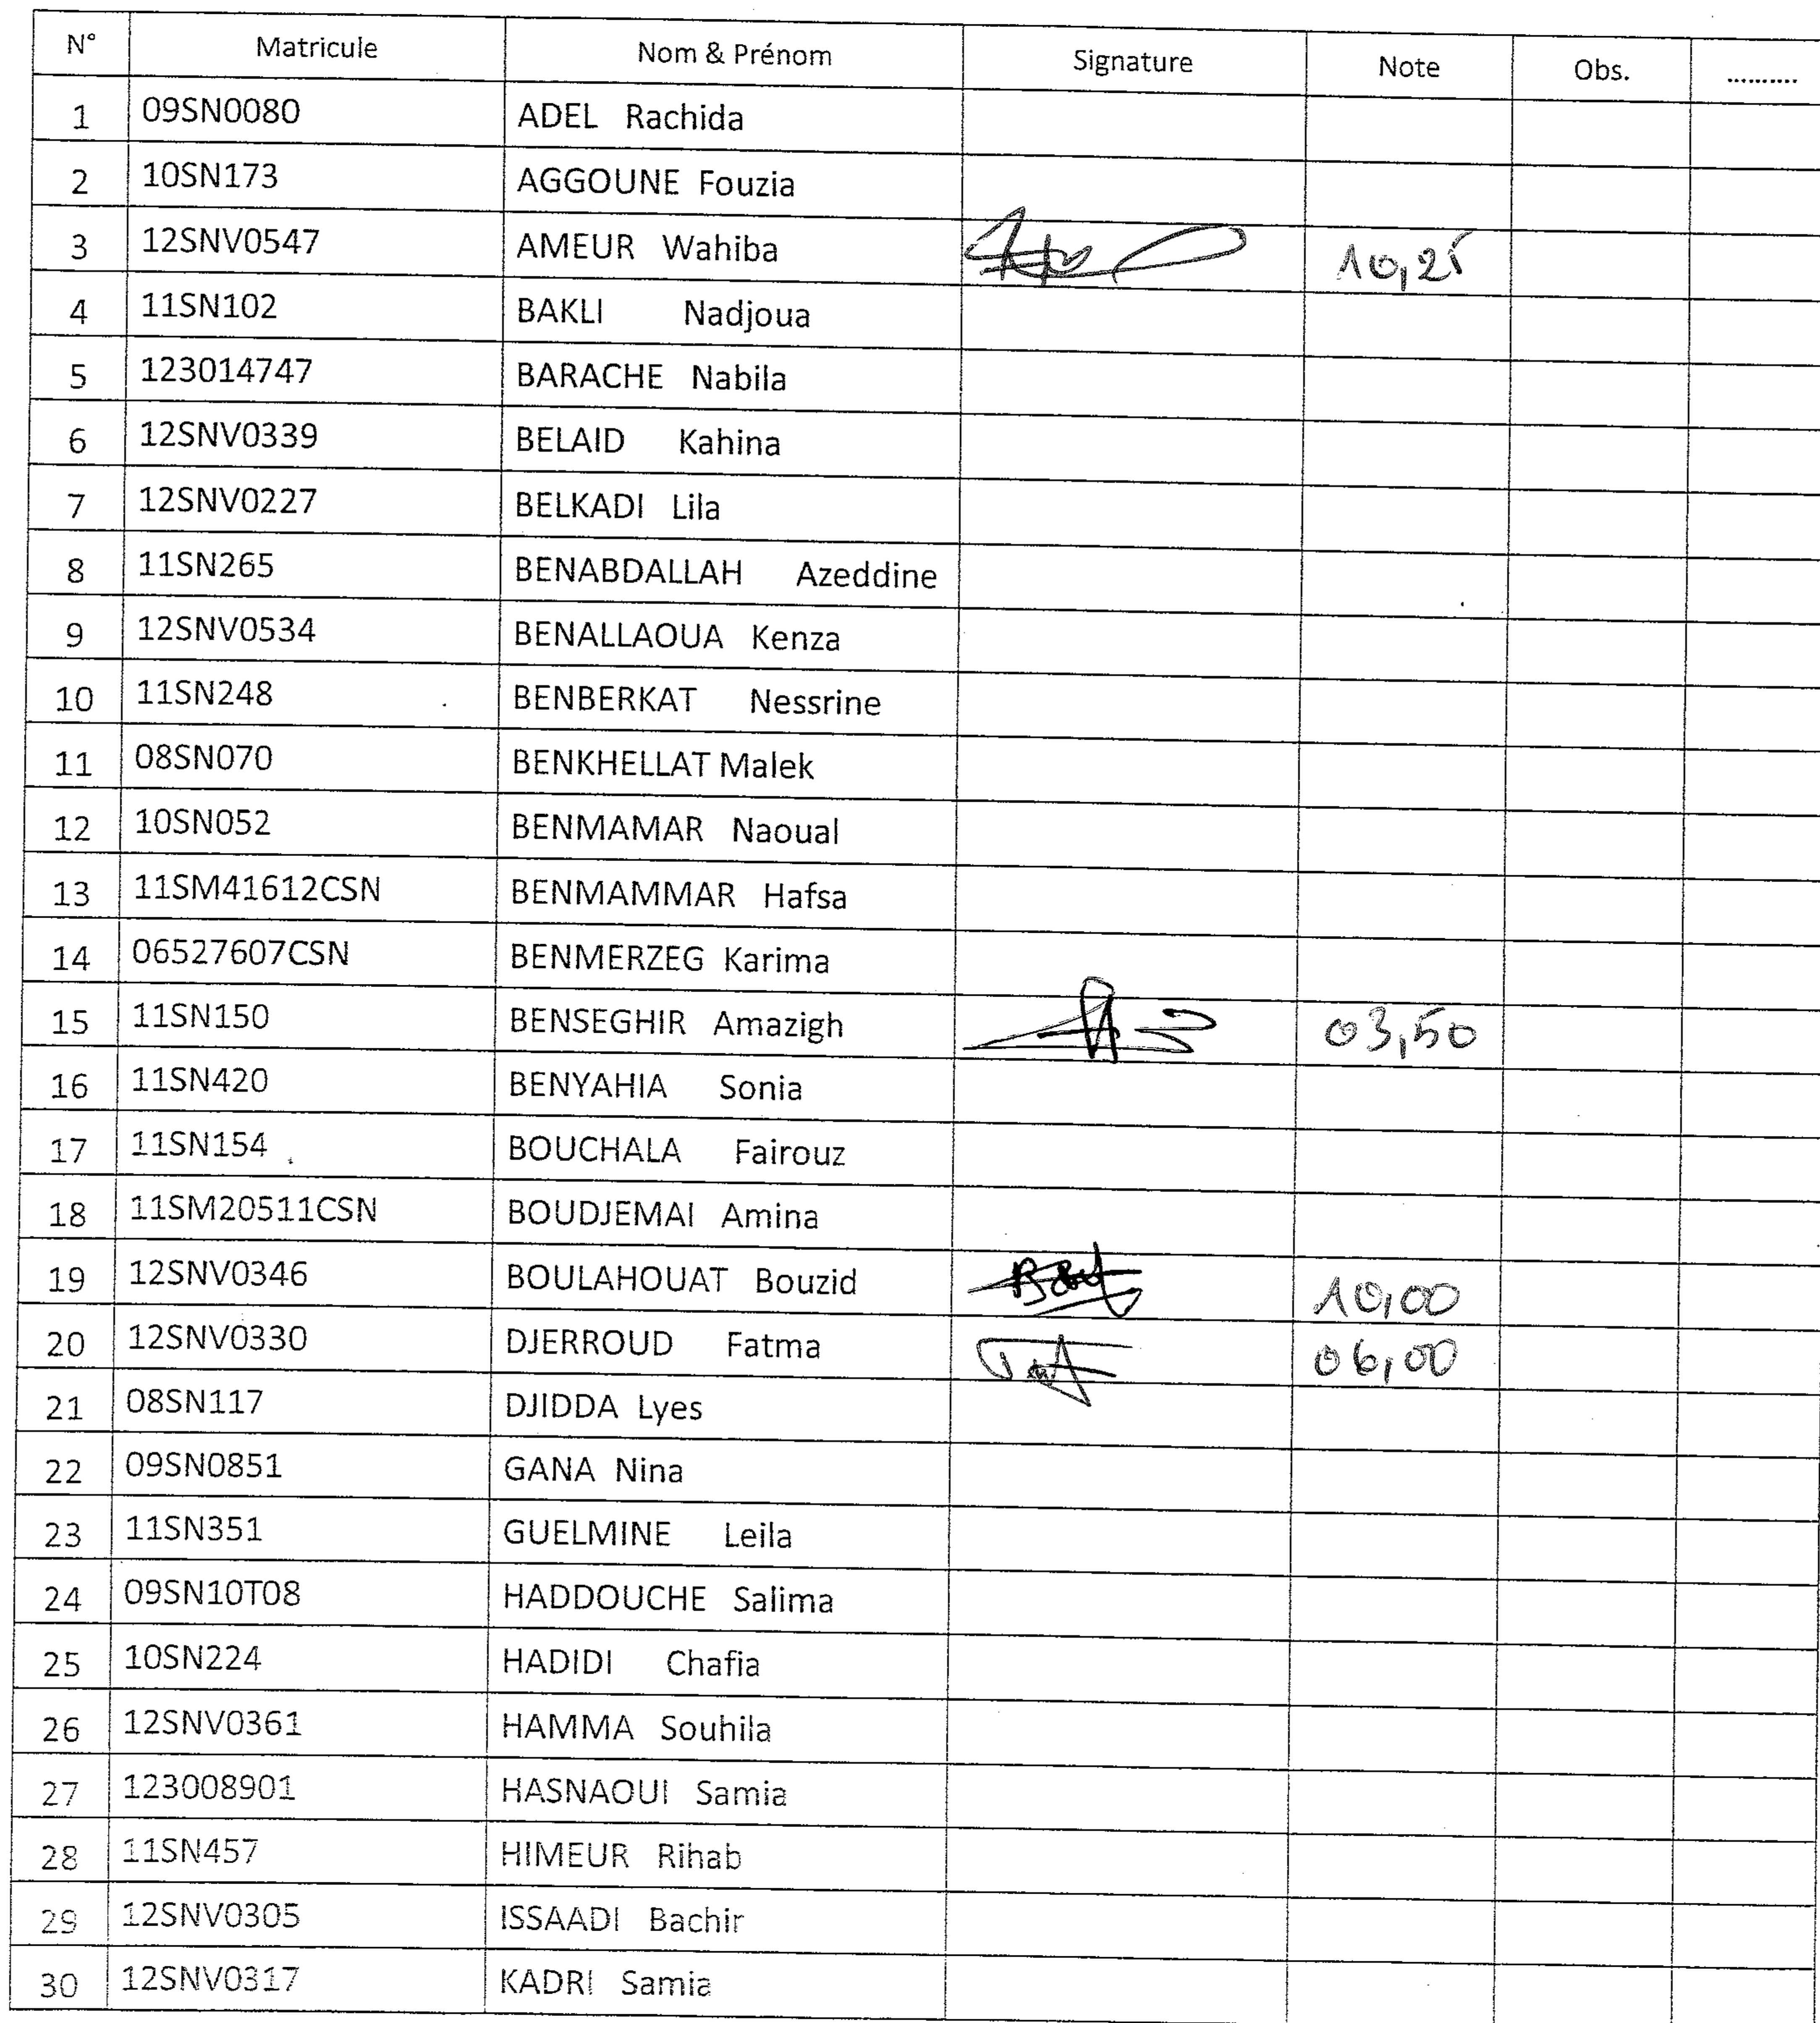 N° Matricule Nom & Prénom Signature Note Obs. ..........
1 09SN0080 ADEL Rachida
2 10SN173 AGGOUNE Fouzia
3 12SNV0547 AMEUR Wahiba 10,25
4 11SN102 BAKLI Nadjoua
5 123014747 BARACHE Nabila
6 12SNV0339 BELAID Kahina
7 12SNV0227 BELKADI Lila
8 11SN265 BENABDALLAH Azeddine
9 12SNV0534 BENALLAOUA Kenza
10 11SN248 BENBERKAT Nessrine
11 08SN070 BENKHELLAT Malek
12 10SN052 BENMAMAR Naoual
13 11SM41612CSN BENMAMMAR Hafsa
14 06527607CSN BENMERZEG Karima
15 11SN150 BENSEGHIR Amazigh 03,50
16 11SN420 BENYAHIA Sonia
17 11SN154 BOUCHALA Fairouz
18 11SM20511CSN BOUDJEMAI Amina
19 12SNV0346 BOULAHOUAT Bouzid 10,00
20 12SNV0330 DJERROUD Fatma 06,00
21 08SN117 DJIDDA Lyes
22 09SN0851 GANA Nina
23 11SN351 GUELMINE Leila
24 09SN10T08 HADDOUCHE Salima
25 10SN224 HADIDI Chafia
26 12SNV0361 HAMMA Souhila
27 123008901 HASNAOUI Samia
28 11SN457 HIMEUR Rihab
29 12SNV0305 ISSAADI Bachir
30 12SNV0317 KADRI Samia